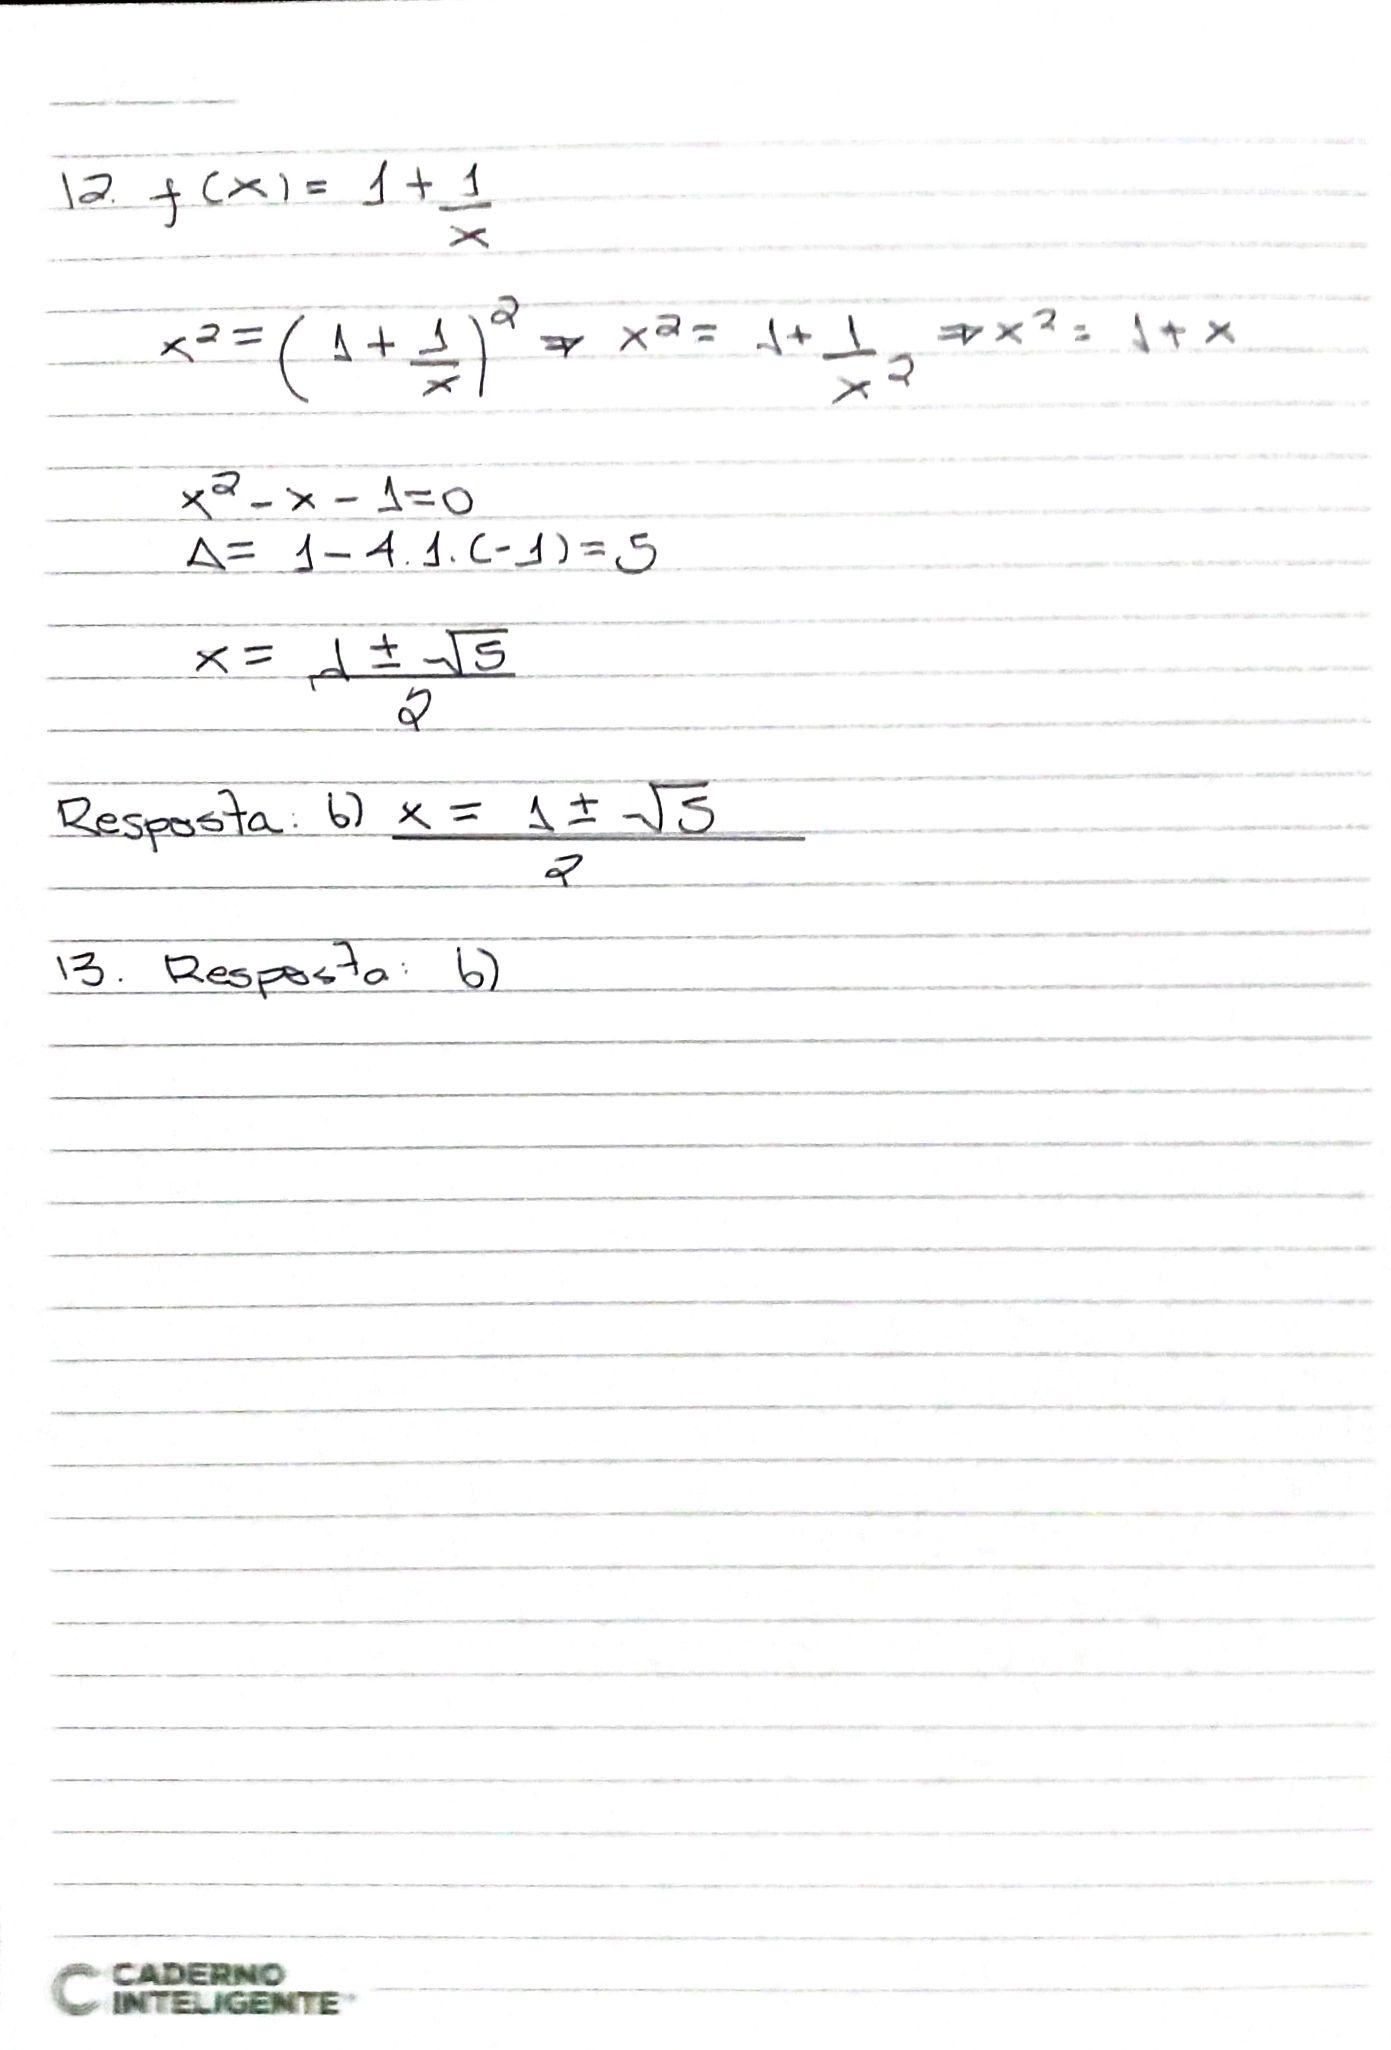 12. f(x) = 1 + 1/x
x² = (1 + 1/x)² ⇒ x² = 1 + 1/x² ⇒ x² = 1 + x
x² - x - 1 = 0
Δ = 1 - 4.1.(-1) = 5
x = 1 ± √5 / 2
Resposta: b) x = 1 ± √5 / 2
13. Resposta: b)
CADERNO
INTELIGENTE